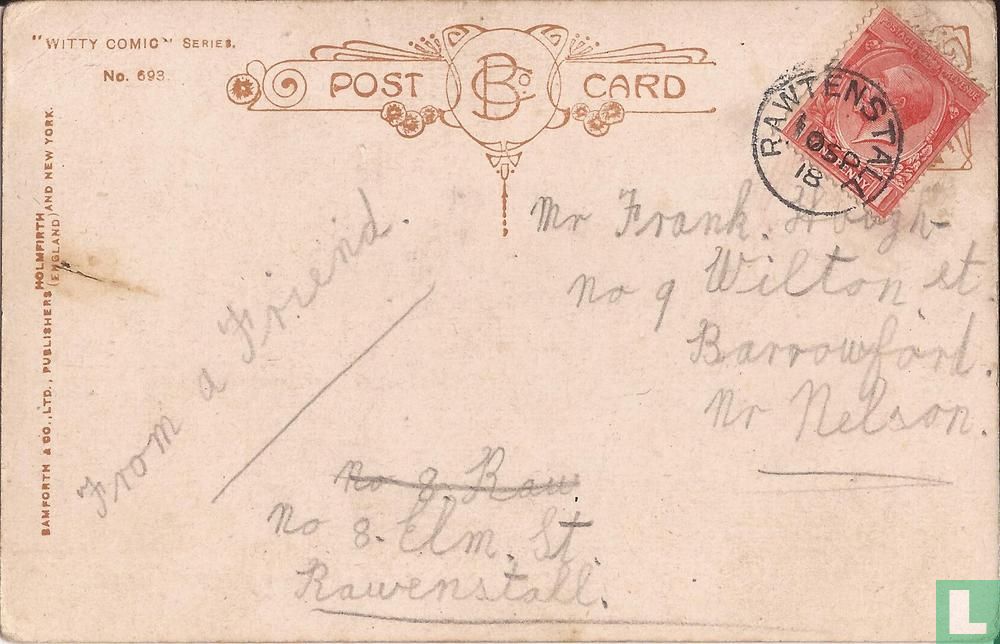 "WITTY COMIC" SERIES.
No. 693.
POST CARD
B Co.
BAMFORTH & CO., LTD., PUBLISHERS HOLMFIRTH (ENGLAND) AND NEW YORK.
RAWTENSTALL
18
PENNY
Mr Frank. Hough
no 9 Wilton st.
Barrowford.
Nr Nelson.
From a Friend.
no 8. Raw
no 8. Elm. St.
Rawenstall.
L